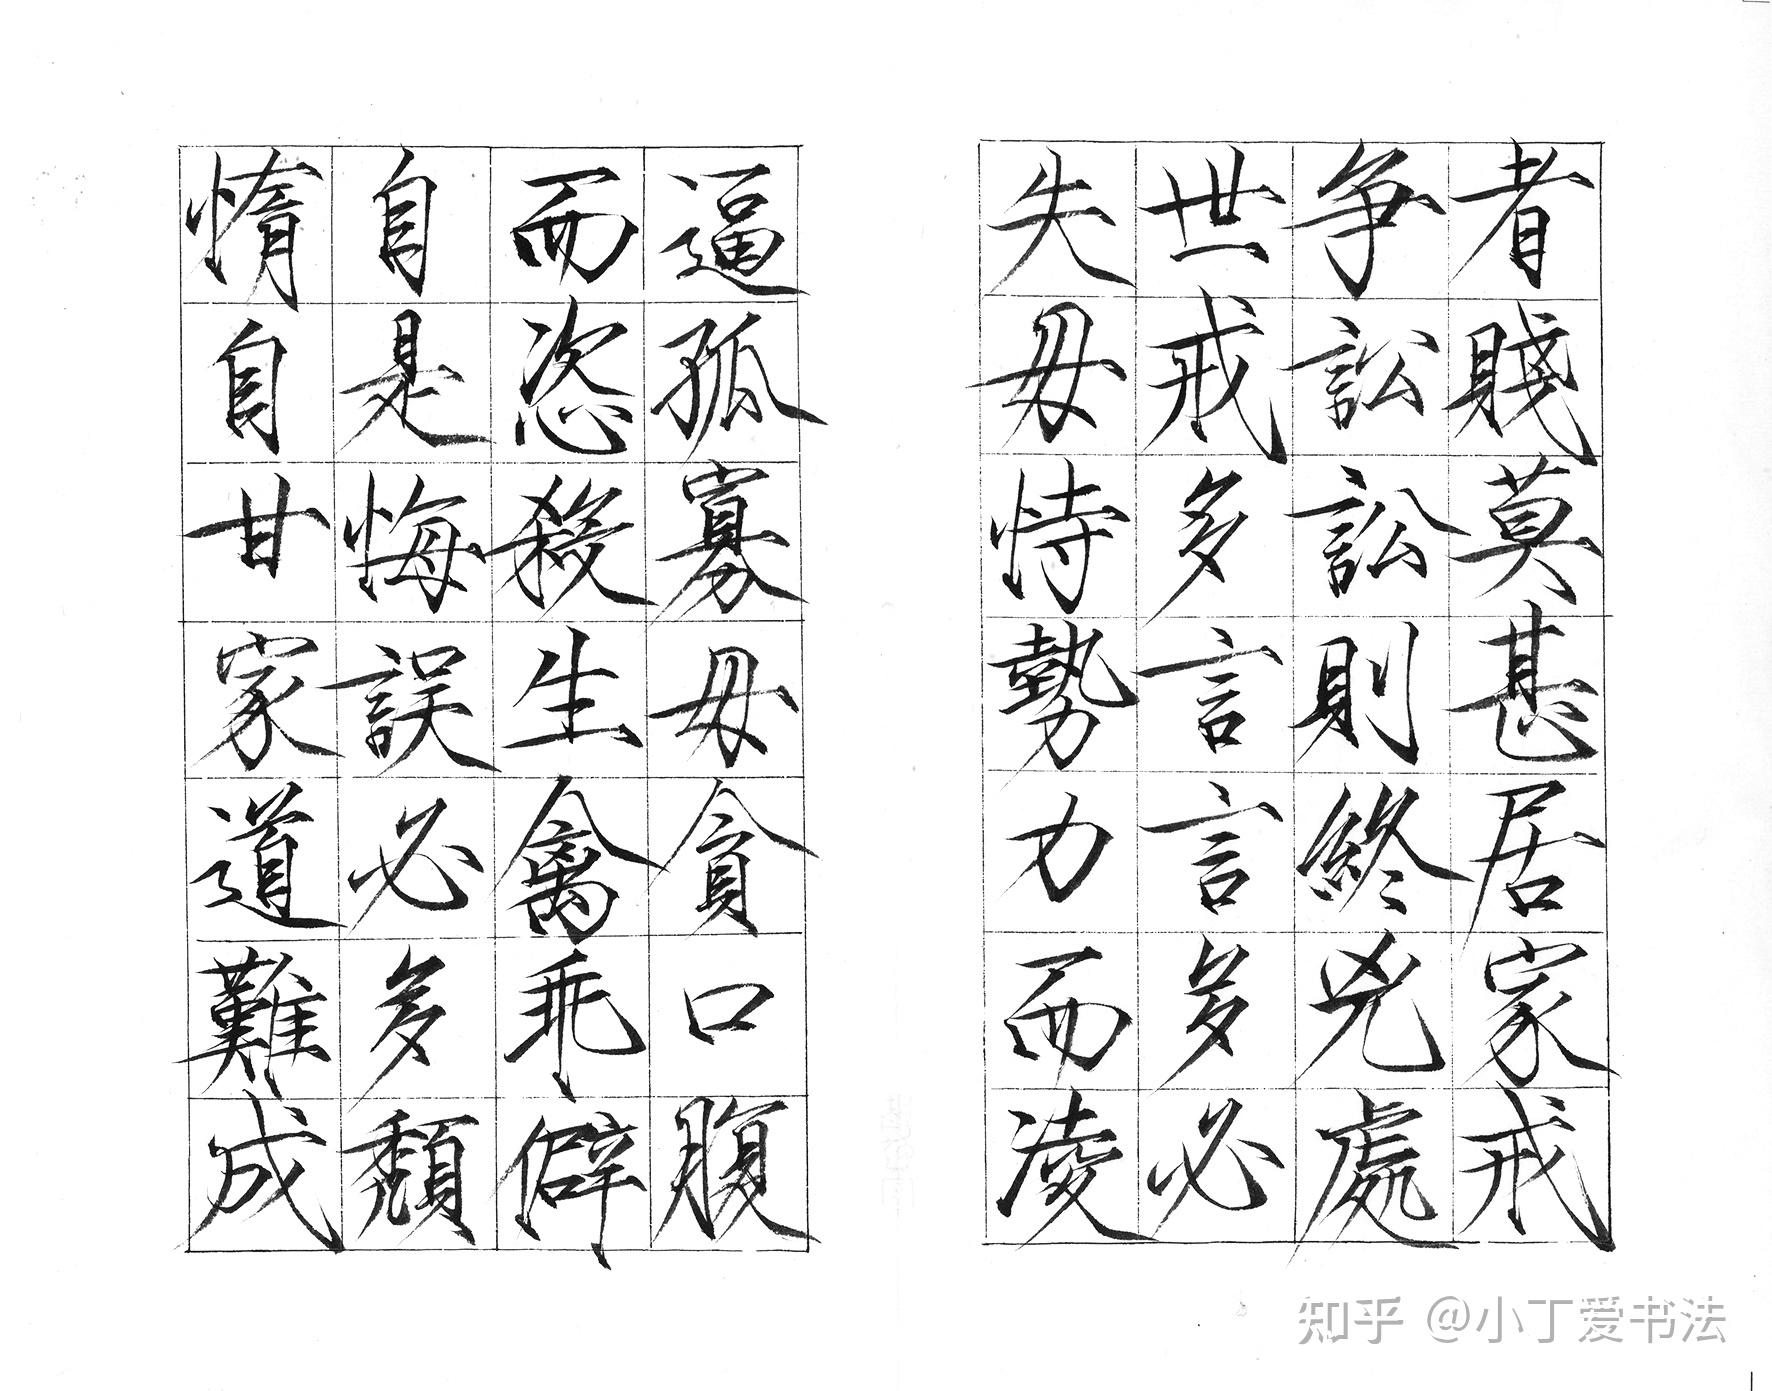 者賤莫甚居家戒
争訟訟則終凶處
世戒多言言多必
失毋恃勢力而凌
逼孤寡毋貪口腹
而恣殺生禽乖僻
自是悔誤必多頹
惰自甘家道難成
知乎 @小丁爱书法